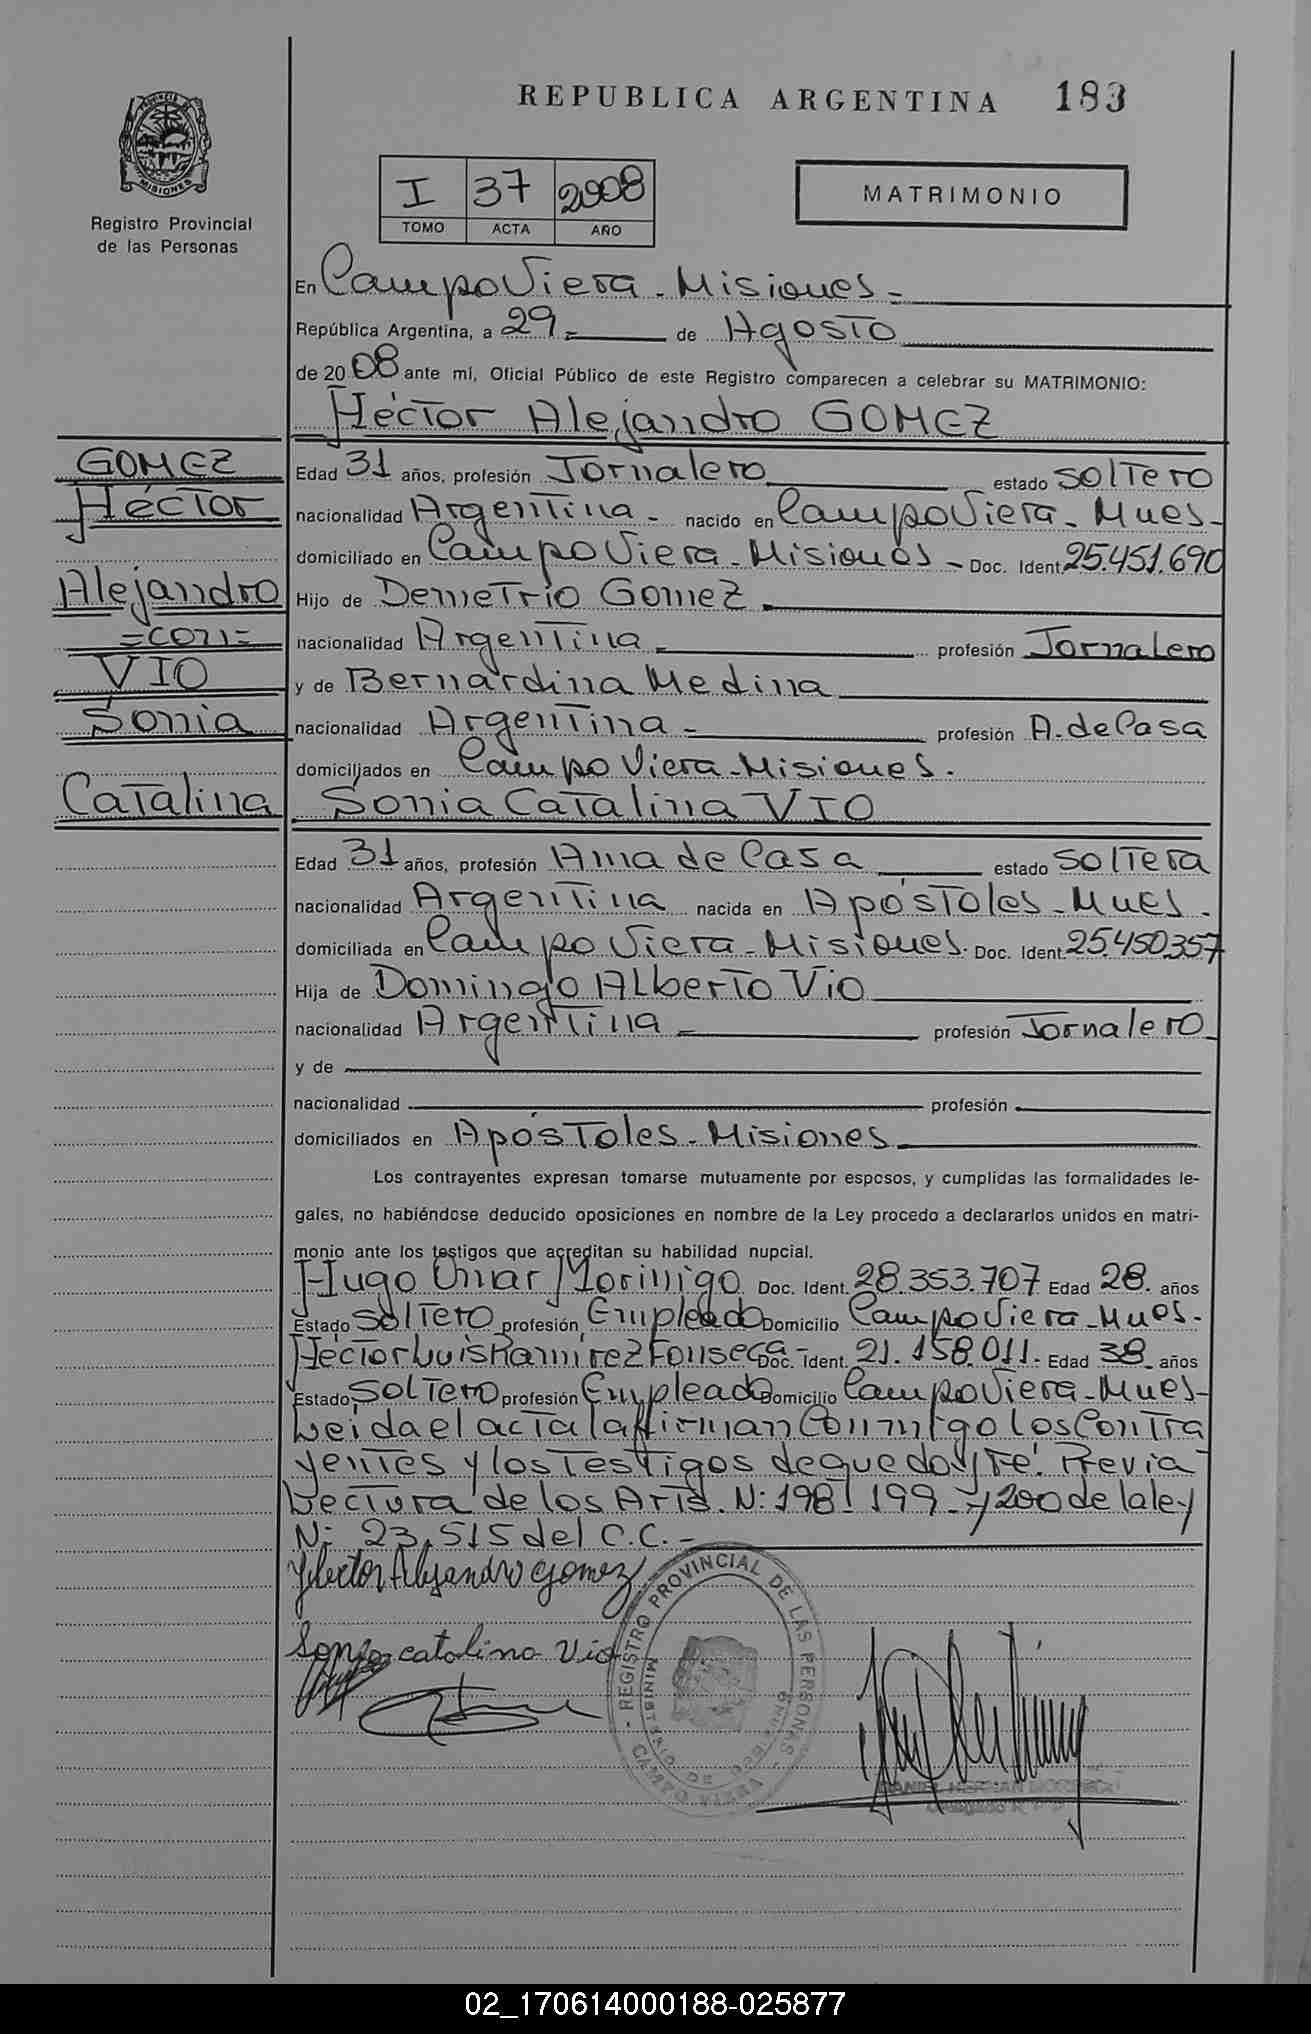 REPUBLICA ARGENTINA 183
PROVINCIA DE MISIONES
Registro Provincial
de las Personas
I 37 2008
TOMO ACTA AÑO
MATRIMONIO
En Campo Viera - Misiones -
República Argentina, a 29 - de Agosto
de 2008 ante mí, Oficial Público de este Registro comparecen a celebrar su MATRIMONIO:
Héctor Alejandro GOMEZ
GOMEZ
Héctor
Alejandro
=con=
VIO
Sonia
Catalina
Edad 31 años, profesión Jornalero estado soltero
nacionalidad Argentina - nacido en Campo Viera - Mnes -
domiciliado en Campo Viera - Misiones - Doc. Ident. 25.451.690
Hijo de Demetrio Gomez
nacionalidad Argentina - profesión Jornalero
y de Bernardina Medina
nacionalidad Argentina - profesión A. de Casa
domiciliados en Campo Viera - Misiones.
Sonia Catalina VIO
Edad 31 años, profesión Ama de Casa estado soltera
nacionalidad Argentina nacida en Apóstoles - Mnes.
domiciliada en Campo Viera - Misiones. Doc. Ident. 25.450.357
Hija de Domingo Alberto Vio
nacionalidad Argentina - profesión Jornalero
y de
nacionalidad profesión
domiciliados en Apóstoles - Misiones
Los contrayentes expresan tomarse mutuamente por esposos, y cumplidas las formalidades le-
gales, no habiéndose deducido oposiciones en nombre de la Ley procedo a declararlos unidos en matri-
monio ante los testigos que acreditan su habilidad nupcial.
Hugo Omar Morinigo Doc. Ident. 28.353.707 Edad 28. años
Estado soltero profesión Empleado Domicilio Campo Viera - Mnes.
Héctor Luis Ramirez Fonseca - Doc. Ident. 21.158.011. Edad 38 años
Estado Soltero profesión Empleado Domicilio Campo Viera - Mnes -
Leida el acta la firman Conmigo los Contra
yentes y los Testigos de que doy Fé. Previa
Lectura de los Arts. N: 198 - 199 - y 200 de la ley
N: 23.515 del C.C. -
Héctor Alejandro Gomez
Sonia catalina Vio
REGISTRO PROVINCIAL DE LAS PERSONAS
MINISTERIO DE GOBIERNO
CAMPO VIERA
DANIEL HERNAN
02_170614000188-025877